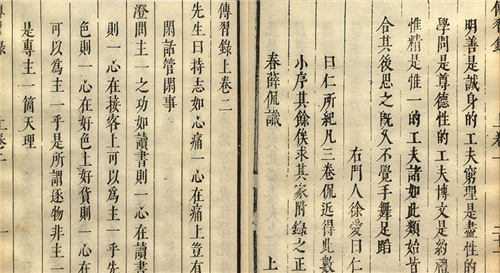 明善是誠身的工夫窮理是盡性的
學問是尊德性的工夫博文是約禮
惟精是惟一的工夫諸如此類始皆
合其後思之既久不覺手舞足蹈
右門人徐愛曰仁
曰仁所紀凡三卷侃近得此數
小序其餘俟求其家附錄之正
春薛侃識 上
傳習錄上卷二
先生曰持志如心痛一心在痛上豈有
閑話管閑事
澄問主一之功如讀書則一心在讀書
則一心在接客上可以為主一乎先
色則一心在好色上好貨則一心在
可以為主一乎是所謂逐物非主一
是專主一箇天理